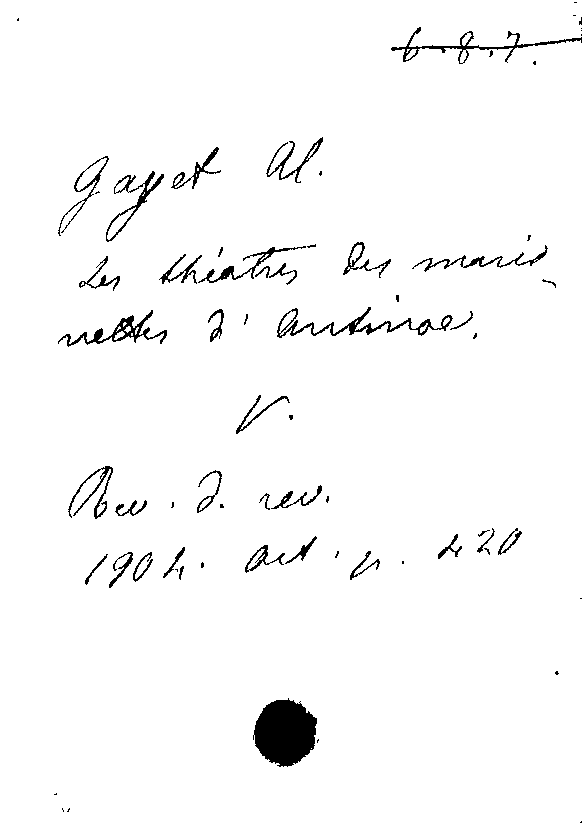 6.8.7.
Gayet Al.
Les théatres des mario-
nettes d'Antinoe.
V.
Rev. d. rev.
1904. Oct. p. 420